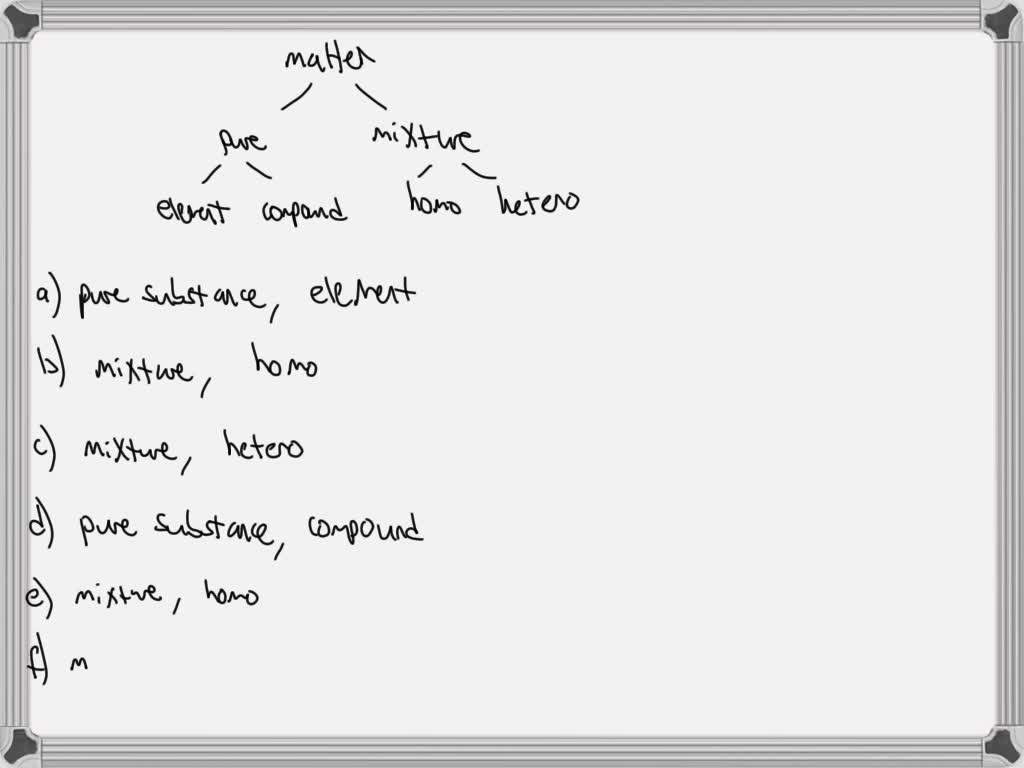 matter
pure mixture
element compound homo hetero
a) pure substance, element
b) mixture, homo
c) mixture, hetero
d) pure substance, compound
e) mixture, homo
f) m